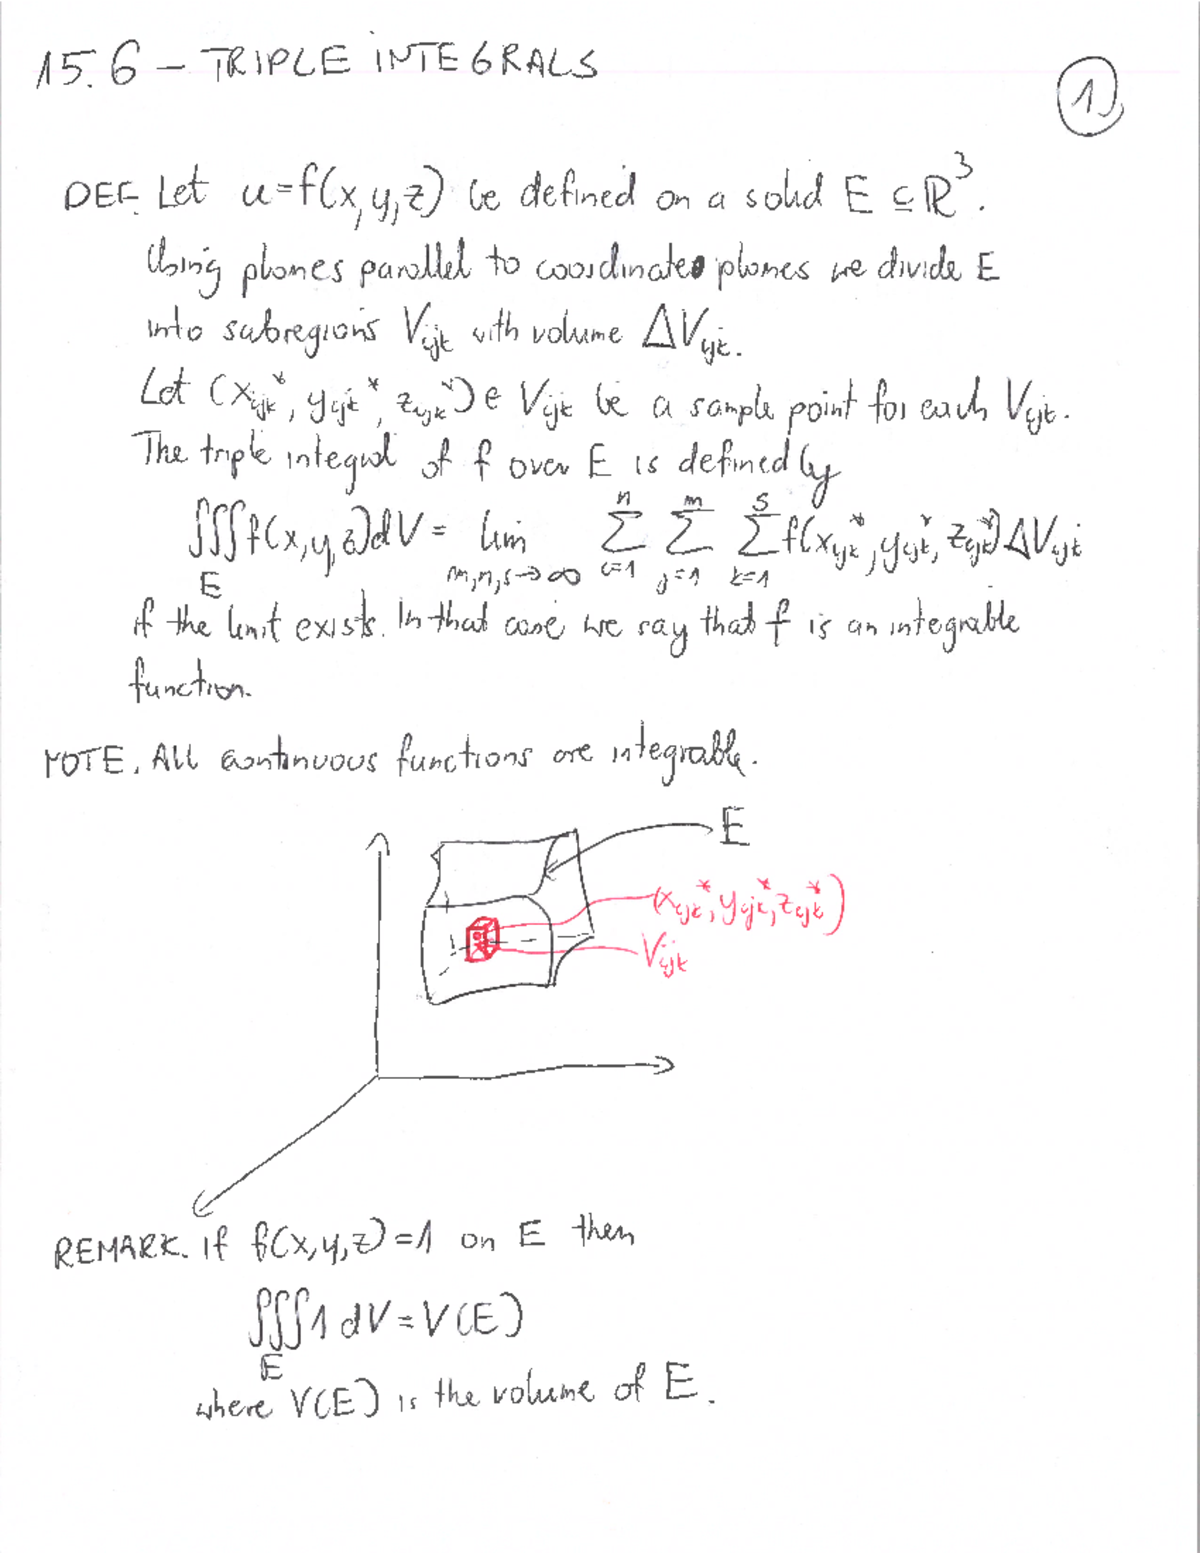 15.6 – TRIPLE INTEGRALS
1
DEF. Let u=f(x,y,z) be defined on a solid E ⊆ ℝ³.
Using planes parallel to coordinate planes we divide E
into subregions Vijk with volume ΔVijk.
Let (xijk*, yijk*, zijk*) ∈ Vijk be a sample point for each Vijk.
The triple integral of f over E is defined by
∭_E f(x,y,z)dV = lim_{m,n,s→∞} ∑_{i=1}^{n} ∑_{j=1}^{m} ∑_{k=1}^{s} f(xijk*, yijk*, zijk*) ΔVijk
if the limit exists. In that case we say that f is an integrable
function.
NOTE. All continuous functions are integrable.
E
(xijk*, yijk*, zijk*)
Vijk
REMARK. If f(x,y,z)=1 on E then
∭_E 1 dV = V(E)
where V(E) is the volume of E.